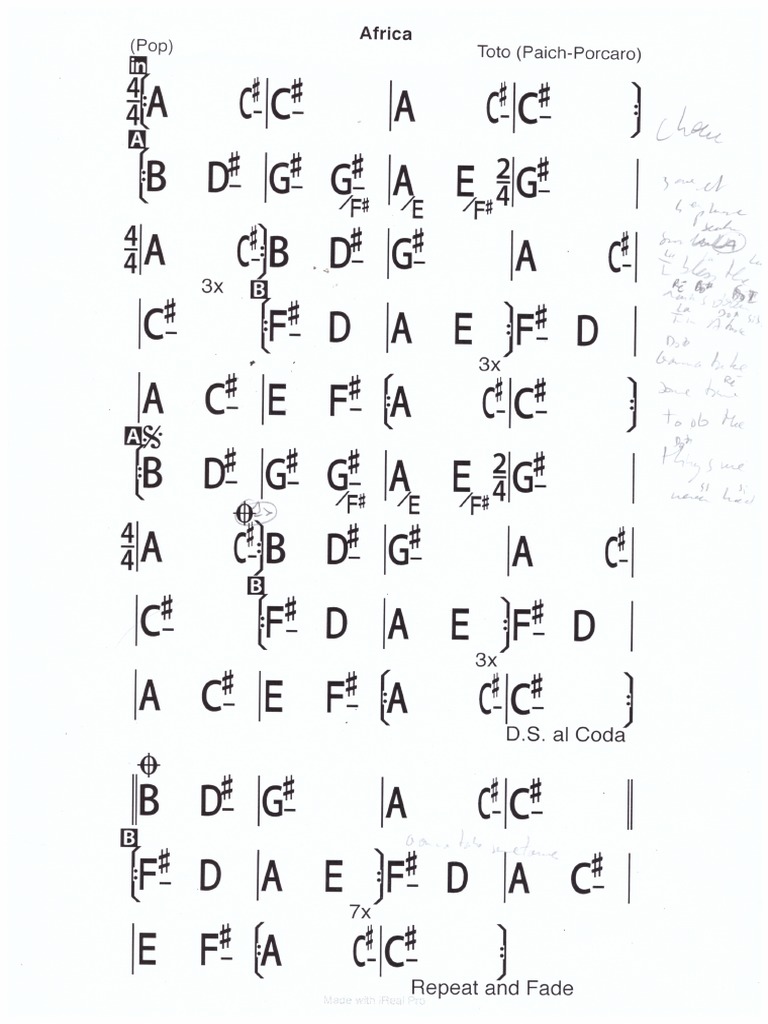 Africa
(Pop)
Toto (Paich-Porcaro)
in
4/4 A C#- C#- A C#- C#-
A
B D#- G#- G#-/F# A/E E/F# 2/4 G#-
4/4 A C#- B D#- G#- A C#-
3x
B
C#- F#- D A E F#- D
3x
A C#- E F#- A C#- C#-
A
B D#- G#- G#-/F# A/E E/F# 2/4 G#-
4/4 A C#- B D#- G#- A C#-
B
C#- F#- D A E F#- D
3x
A C#- E F#- A C#- C#-
D.S. al Coda
B D#- G#- A C#- C#-
B
F#- D A E F#- D A C#-
7x
E F#- A C#- C#-
Repeat and Fade
Made with iReal Pro
bless the
some time
to do the
things we
never had